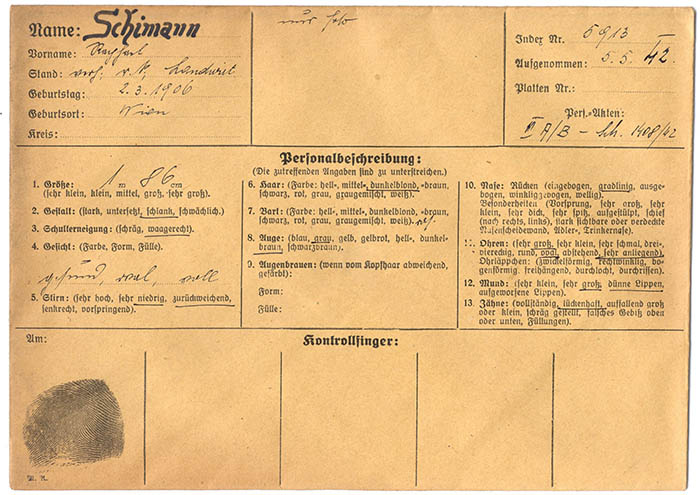 Name: Schimann
nur foto
Vorname: Raphael
Stand: verh. r.k. Landwirt
Geburtstag: 2.3.1906
Geburtsort: Wien
Kreis:
Index Nr. 5913
Aufgenommen: 5.5.42
Platten Nr.:
Pers.-Akten:
II A/B - 1408/42
Personalbeschreibung:
(Die zutreffenden Angaben sind zu unterstreichen.)
1. Größe: 1 m 86 cm
(sehr klein, klein, mittel, groß, sehr groß).
2. Gestalt: (stark, untersetzt, schlank, schwächlich).
3. Schulterneigung: (schräg, waagerecht).
4. Gesicht: (Farbe, Form, Fülle).
gesund, oval, voll
5. Stirn: (sehr hoch, sehr niedrig, zurückweichend,
senkrecht, vorspringend).
6. Haar: (Farbe: hell-, mittel-, dunkelblond, -braun,
schwarz, rot, grau, graugemischt, weiß).
7. Bart: (Farbe: hell-, mittel-, dunkelblond, -braun,
schwarz, rot, grau, graugemischt, weiß)
8. Auge: (blau, grau, gelb, gelbrot, hell-, dunkel-
braun, schwarzbraun).
9. Augenbrauen: (wenn vom Kopfhaar abweichend,
gefärbt):
Form:
Fülle:
10. Nase: Rücken (eingebogen, gradlinig, ausge-
bogen, winklig gebogen, wellig).
Besonderheiten (Vorsprung, sehr groß, sehr
klein, sehr dick, sehr spitz, aufgestülpt, schief
(nach rechts, links), stark sichtbare oder verdeckte
Nasenscheidewand, Adler-, Trinkernase).
11. Ohren: (sehr groß, sehr klein, sehr schmal, drei-,
viereckig, rund, oval, abstehend, sehr anliegend),
Ohrläppchen: (zwickelförmig, rechtwinklig, bo-
genförmig, freihängend, durchlocht, durchrissen).
12. Mund: (sehr klein, sehr groß, dünne Lippen,
aufgeworfene Lippen).
13. Zähne: (vollständig, lückenhaft, auffallend groß
oder klein, schräg gestellt, falsches Gebiß oben
oder unten, Füllungen).
Am:
Kontrollfinger: